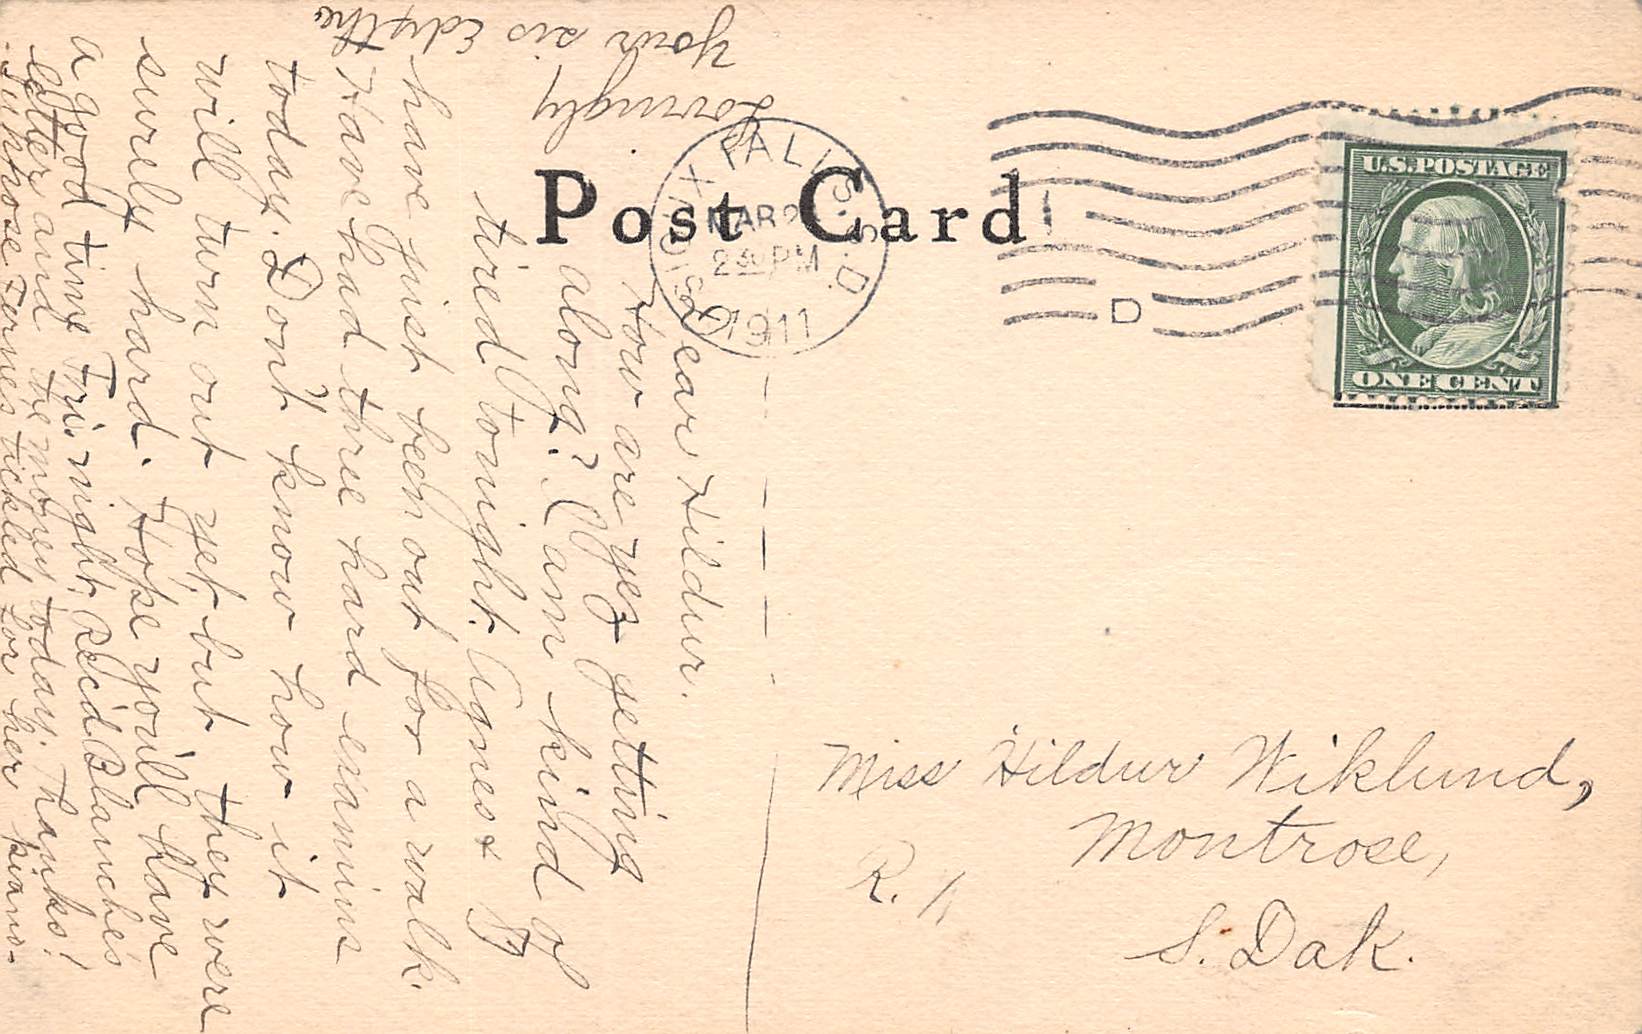 Post Card
SIOUX FALLS, S.D.
MAR
230 PM
1911
D
U.S. POSTAGE
ONE CENT
Dear Hildur.
How are yez getting
along? I am kind of
tired tonight. Agnes & I
have just been out for a walk.
Have had three hard exams
today. Don't know how it
will turn out yet, but they were
surely hard. Hope you'll have
a good time Fri. night. Rec'd Blanche's
letter and the money today. Thanks!
Fernes tickled for her piano-
Lovingly
your sis Edythe
Miss Hildur Wiklund,
Montrose,
R. 1
S. Dak.